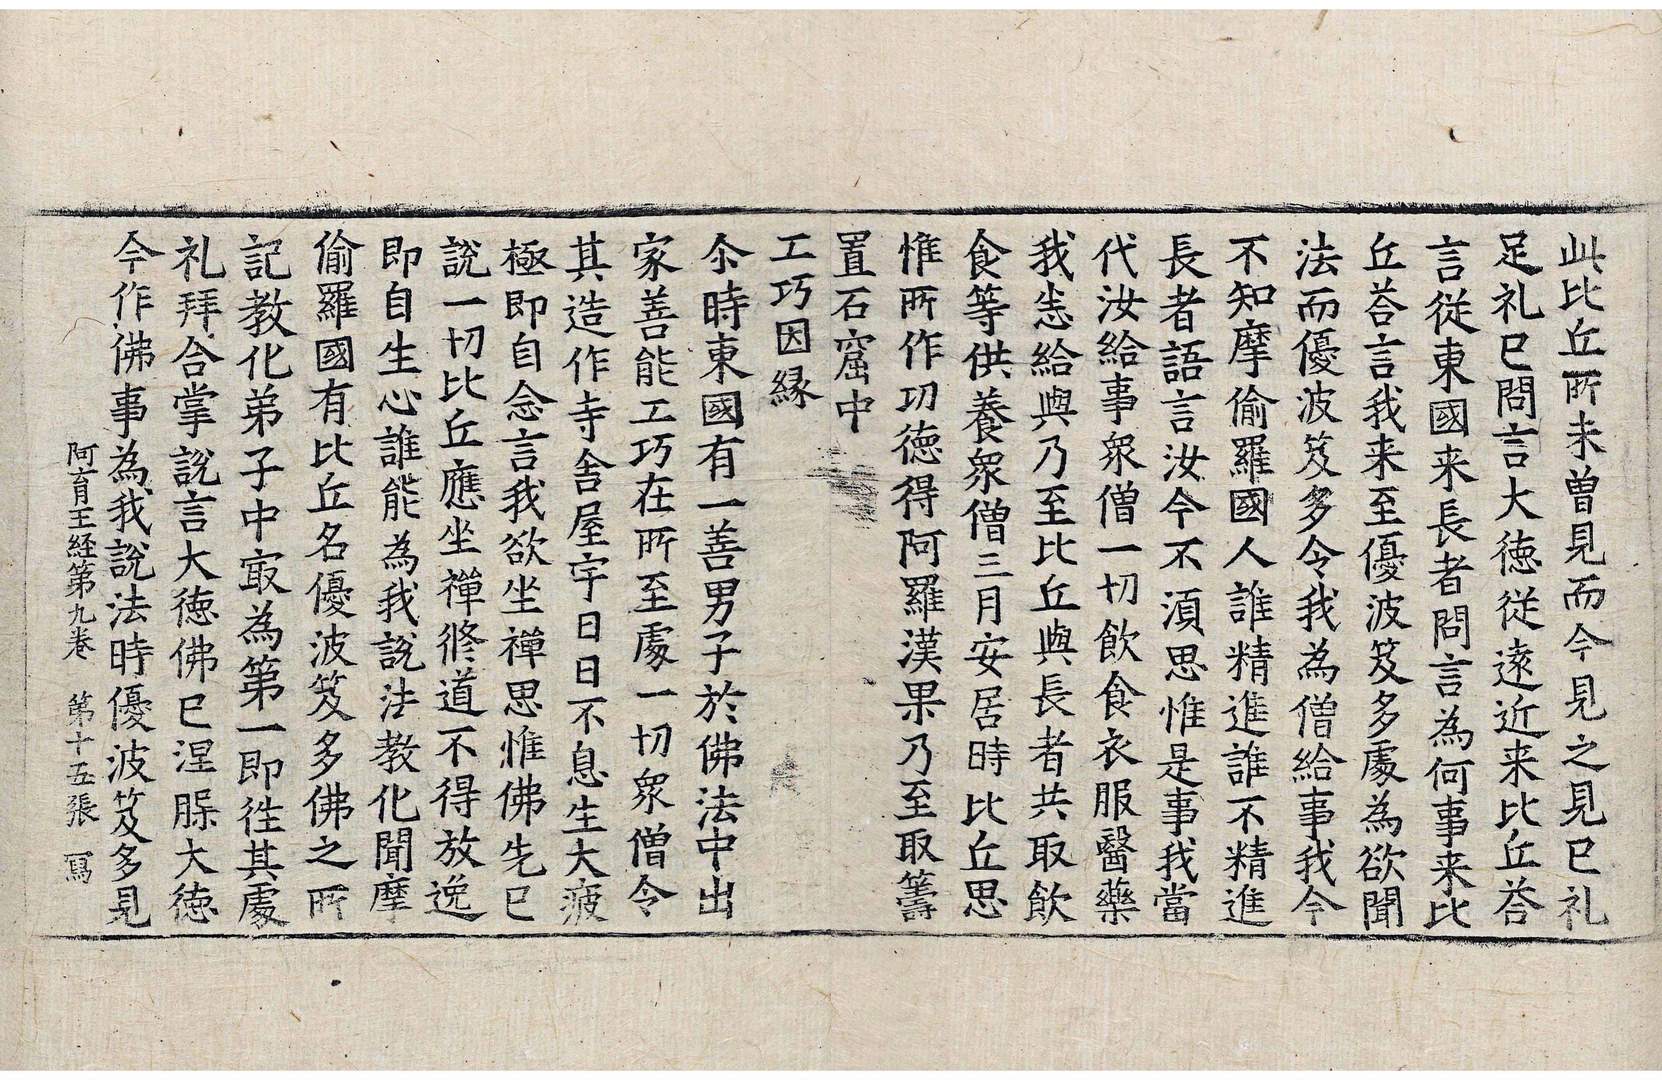 此比丘所未曽見而今見之見已礼
足礼已問言大徳従遠近来比丘荅
言從東國来長者問言為何事来比
丘荅言我来至優波笈多處為欲聞
法而優波笈多令我為僧給事我今
不知摩偷羅國人誰精進誰不精進
長者語言汝今不湏思惟是事我當
代汝給事衆僧一切飲食衣服醫藥
我悉給與乃至比丘與長者共取飲
食等供養衆僧三月安居時比丘思
惟所作功徳得阿羅漢果乃至取籌
置石窟中
工巧因縁
尒時東國有一善男子於佛法中出
家善能工巧在所至處一切衆僧令
其造作寺舎屋宇日日不息生大疲
極即自念言我欲坐禪思惟佛先已
說一切比丘應坐禪修道不得放逸
即自生心誰能為我說法教化聞摩
偷羅國有比丘名優波笈多佛之所
記教化弟子中冣為第一即往其處
礼拜合掌說言大徳佛已涅槃大徳
今作佛事為我說法時優波笈多見
阿育王経第九巻 第十五張 寫